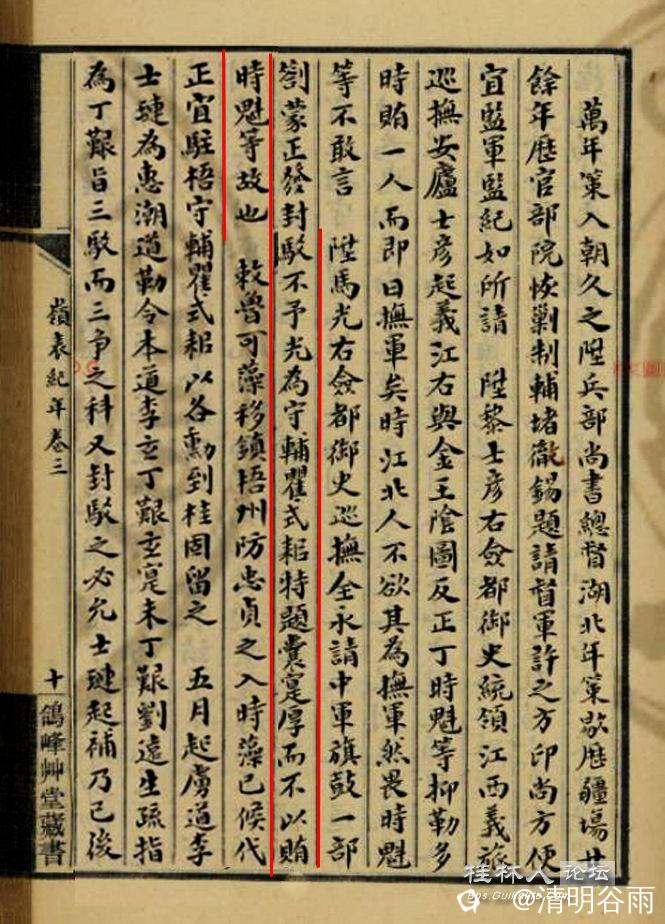 萬年策入朝久之陞兵部尚書總督湖北年策歇歷疆場廿
餘年歷官部院恢剿制輔堵徹錫題請督軍許之方印尚方便
宜監軍監紀如所請　陞黎士彦右僉都御史統領江西義旅
巡撫安廬士彦起義江右與金王陰圖反正丁時魁等抑勒多
時賄一人而即日撫軍矣時江北人不欲其為撫軍然畏時魁
等不敢言　陞馬光右僉都御史巡撫全永請中軍旗鼓一部
劄蒙正發封駁不予光為守輔瞿式耜特題囊寔厚而不以賄
時魁等故也　敕魯可藻移鎮梧州防忠貞之入時藻已候代
正宜駐梧守輔瞿式耜以各勳到桂固留之　五月起虜道李
士璉為惠潮道勒令本道李玄丁艱玄寔未丁艱劉遠生疏指
為丁艱旨三駁而三争之科又封駁之必允士璉起補乃已後
嶺表紀年卷三
十
鴿峰艸堂藏書
桂林人论坛
bbs.Guilinlife.com
@清明谷雨